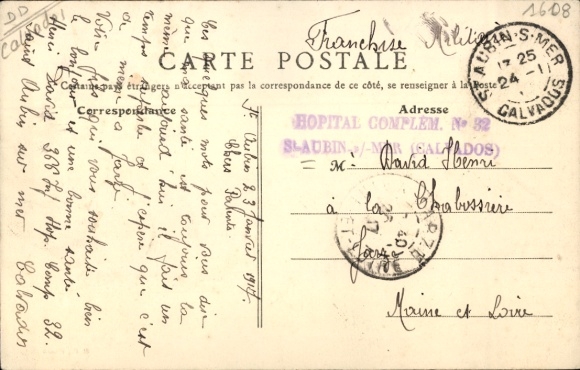 DD
1608
Franchise Militaire
CARTE POSTALE
Certains pays étrangers n'acceptent pas la correspondance de ce côté, se renseigner à la Poste
Correspondance
Adresse
St AUBIN-S-MER
17 25
24 -1
CALVADOS
HOPITAL COMPLÉM. No 32
St-AUBIN-s/-MER (CALVADOS)
= Mr David Henri
à la Chabossière
Jarzé
Maine et Loire
St Aubin 23 Janvier 1917
Chers Parents
Ces quelques mots pour vous dire
que ma santé est toujours la
même aujourd'hui il fait un
temps superbe et j'espère que c'est
de même à Jarzé
Votre fils qui vous souhaite bien
le bonjour et une bonne santé
Henri David 366 Inf Hop. Comp 32.
Saint Aubin sur mer, Calvados